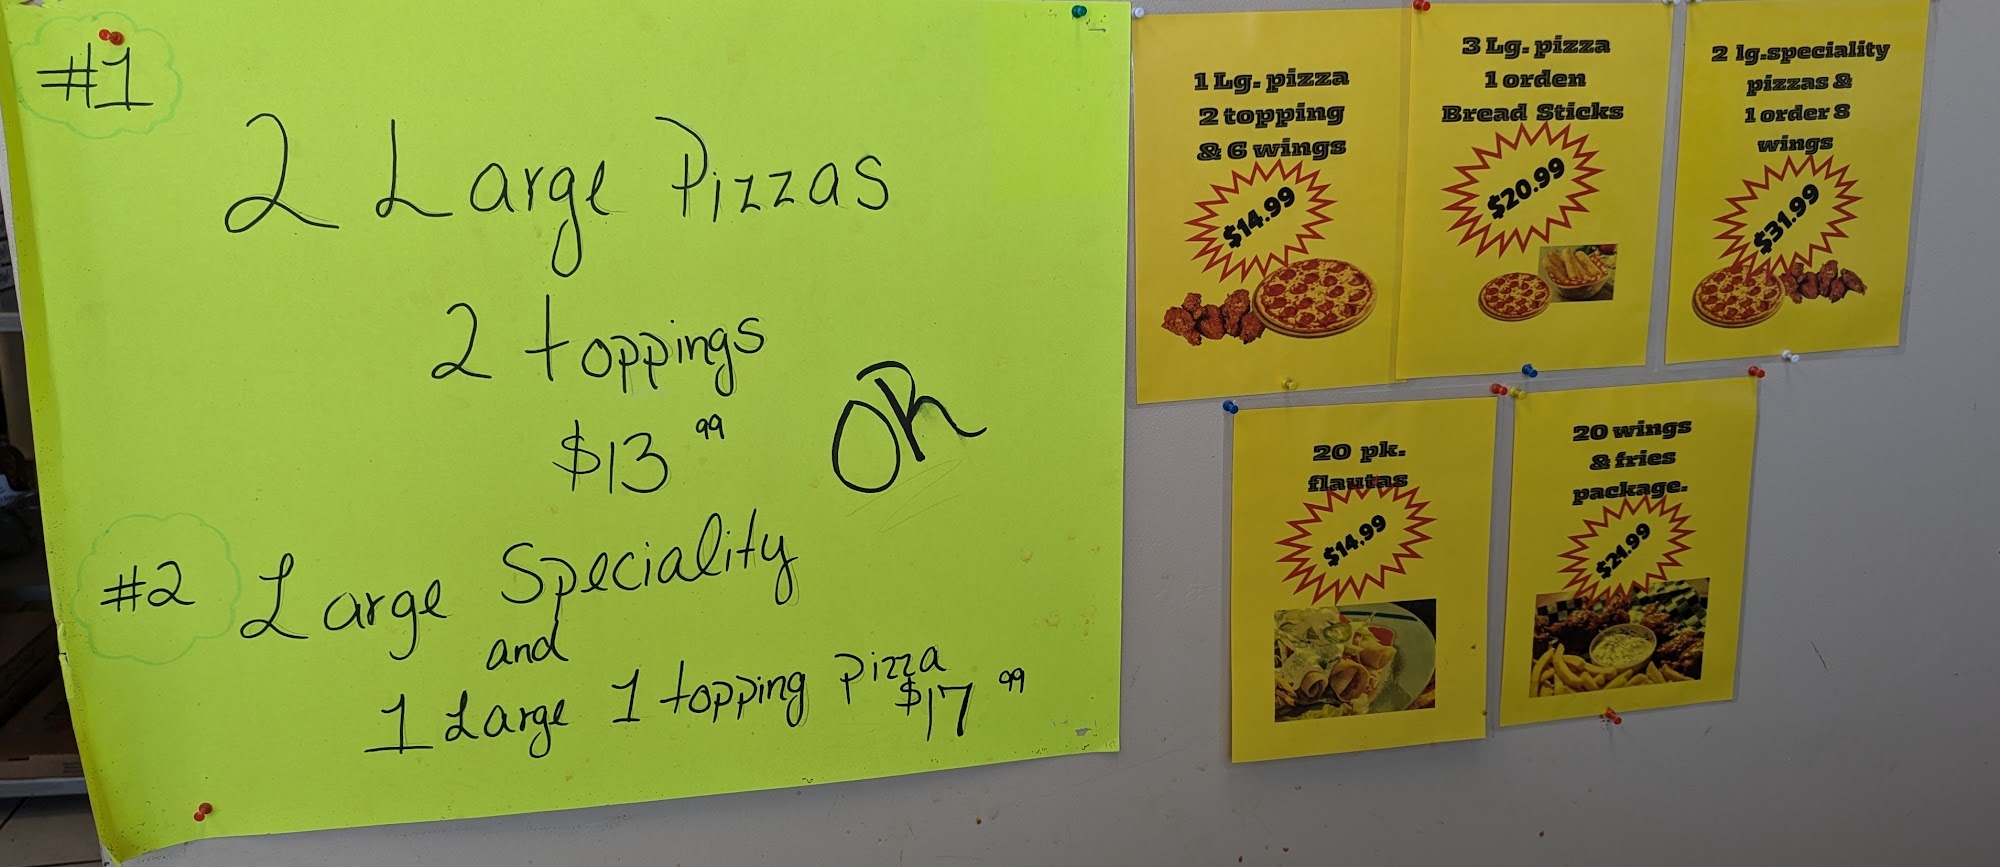 #1
2 Large Pizzas
2 toppings
$13 99
OR
#2 Large Speciality
and
1 Large 1 topping pizza
$17 99
1 Lg. pizza
2 topping
& 6 wings
$14.99
3 Lg. pizza
1 orden
Bread Sticks
$20.99
2 lg.speciality
pizzas &
1 order 8
wings
$31.99
20 pk.
flautas
$14.99
20 wings
& fries
package.
$24.99